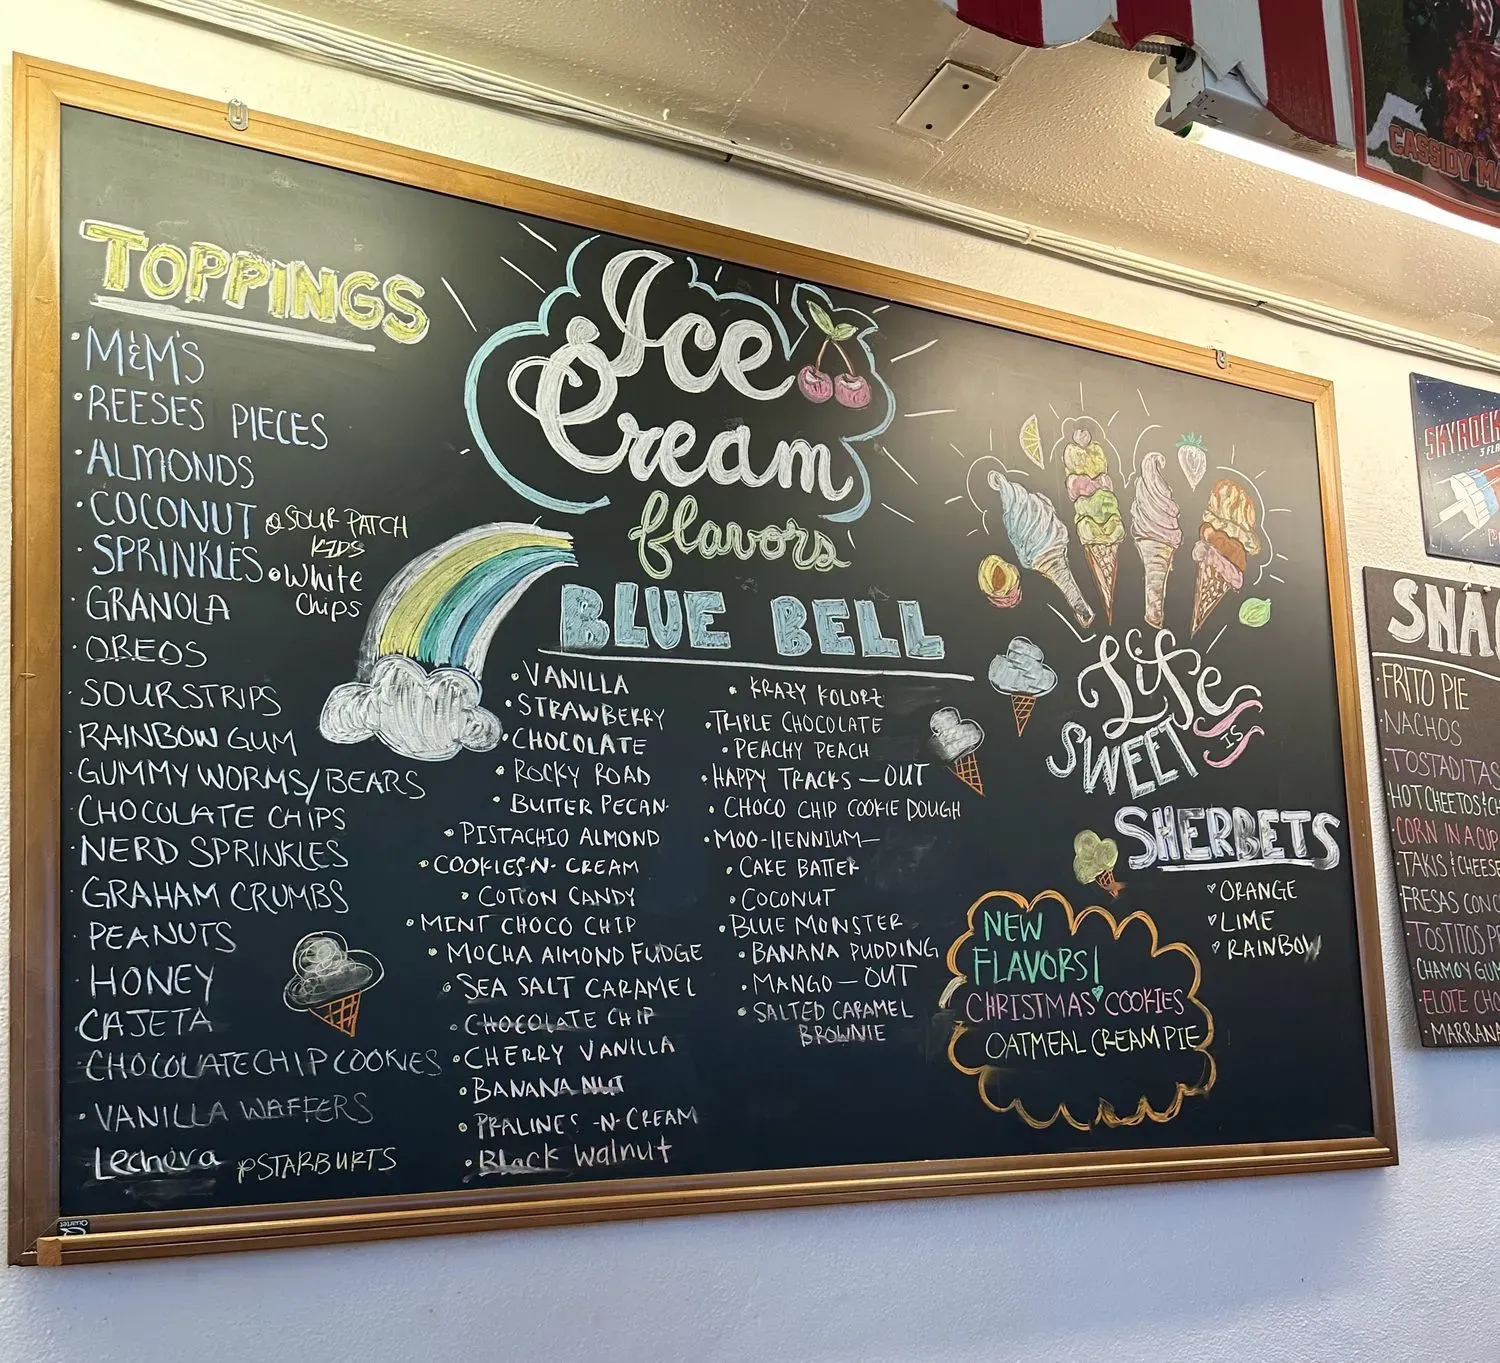 TOPPINGS
M&M'S
REESES PIECES
ALMONDS
COCONUT
SPRINKLES
SOUR PATCH
KIDS
White
Chips
GRANOLA
OREOS
SOURSTRIPS
RAINBOW GUM
GUMMY WORMS/BEARS
CHOCOLATE CHIPS
NERD SPRINKLES
GRAHAM CRUMBS
PEANUTS
HONEY
CAJETA
CHOCOLATE CHIP COOKIES
VANILLA WAFFERS
Lechera
STARBURTS
Ice
Cream
flavors
BLUE BELL
VANILLA
STRAWBERRY
CHOCOLATE
ROCKY ROAD
BUTTER PECAN
PISTACHIO ALMOND
COOKIES-N-CREAM
COTTON CANDY
MINT CHOCO CHIP
MOCHA ALMOND FUDGE
SEA SALT CARAMEL
CHOCOLATE CHIP
CHERRY VANILLA
BANANA NUT
PRALINES -N- CREAM
Black Walnut
KRAZY KOLORZ
TRIPLE CHOCOLATE
PEACHY PEACH
HAPPY TRACKS — OUT
CHOCO CHIP COOKIE DOUGH
MOO-llENNIUM—
CAKE BATTER
COCONUT
BLUE MONSTER
BANANA PUDDING
MANGO — OUT
SALTED CARAMEL
BROWNIE
Life
IS
SWEET
SHERBETS
ORANGE
LIME
RAINBOW
NEW
FLAVORS!
CHRISTMAS COOKIES
OATMEAL CREAM PIE
Quartet
CASSIDY
FRITO PIE
NACHOS
TOSTADITAS
CORN IN A CUP